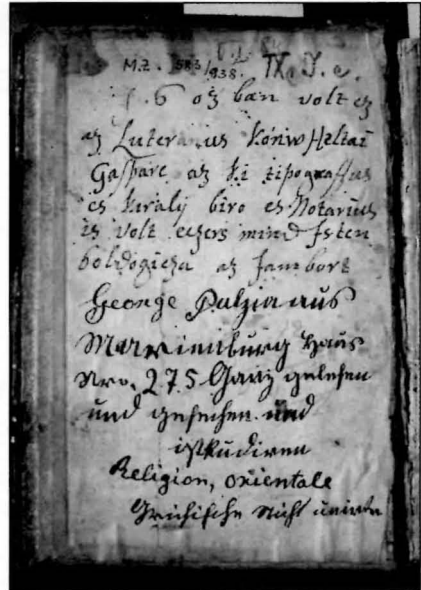 M.Z. 583/938. IX. J. c.
1.6 oz ban volt ez
az Luteranus köniw Heltai
Gaspare az ki tipograffus
es kiraly biro es Notarius
is volt eczers mind Isten
boldogicza az Jambort
George Puhia aus
Marienburg Haus
Nro. 275 Ganz gelesen
und gesehen und
istkudiren
Religion, orientale
Grichische nicht unirte